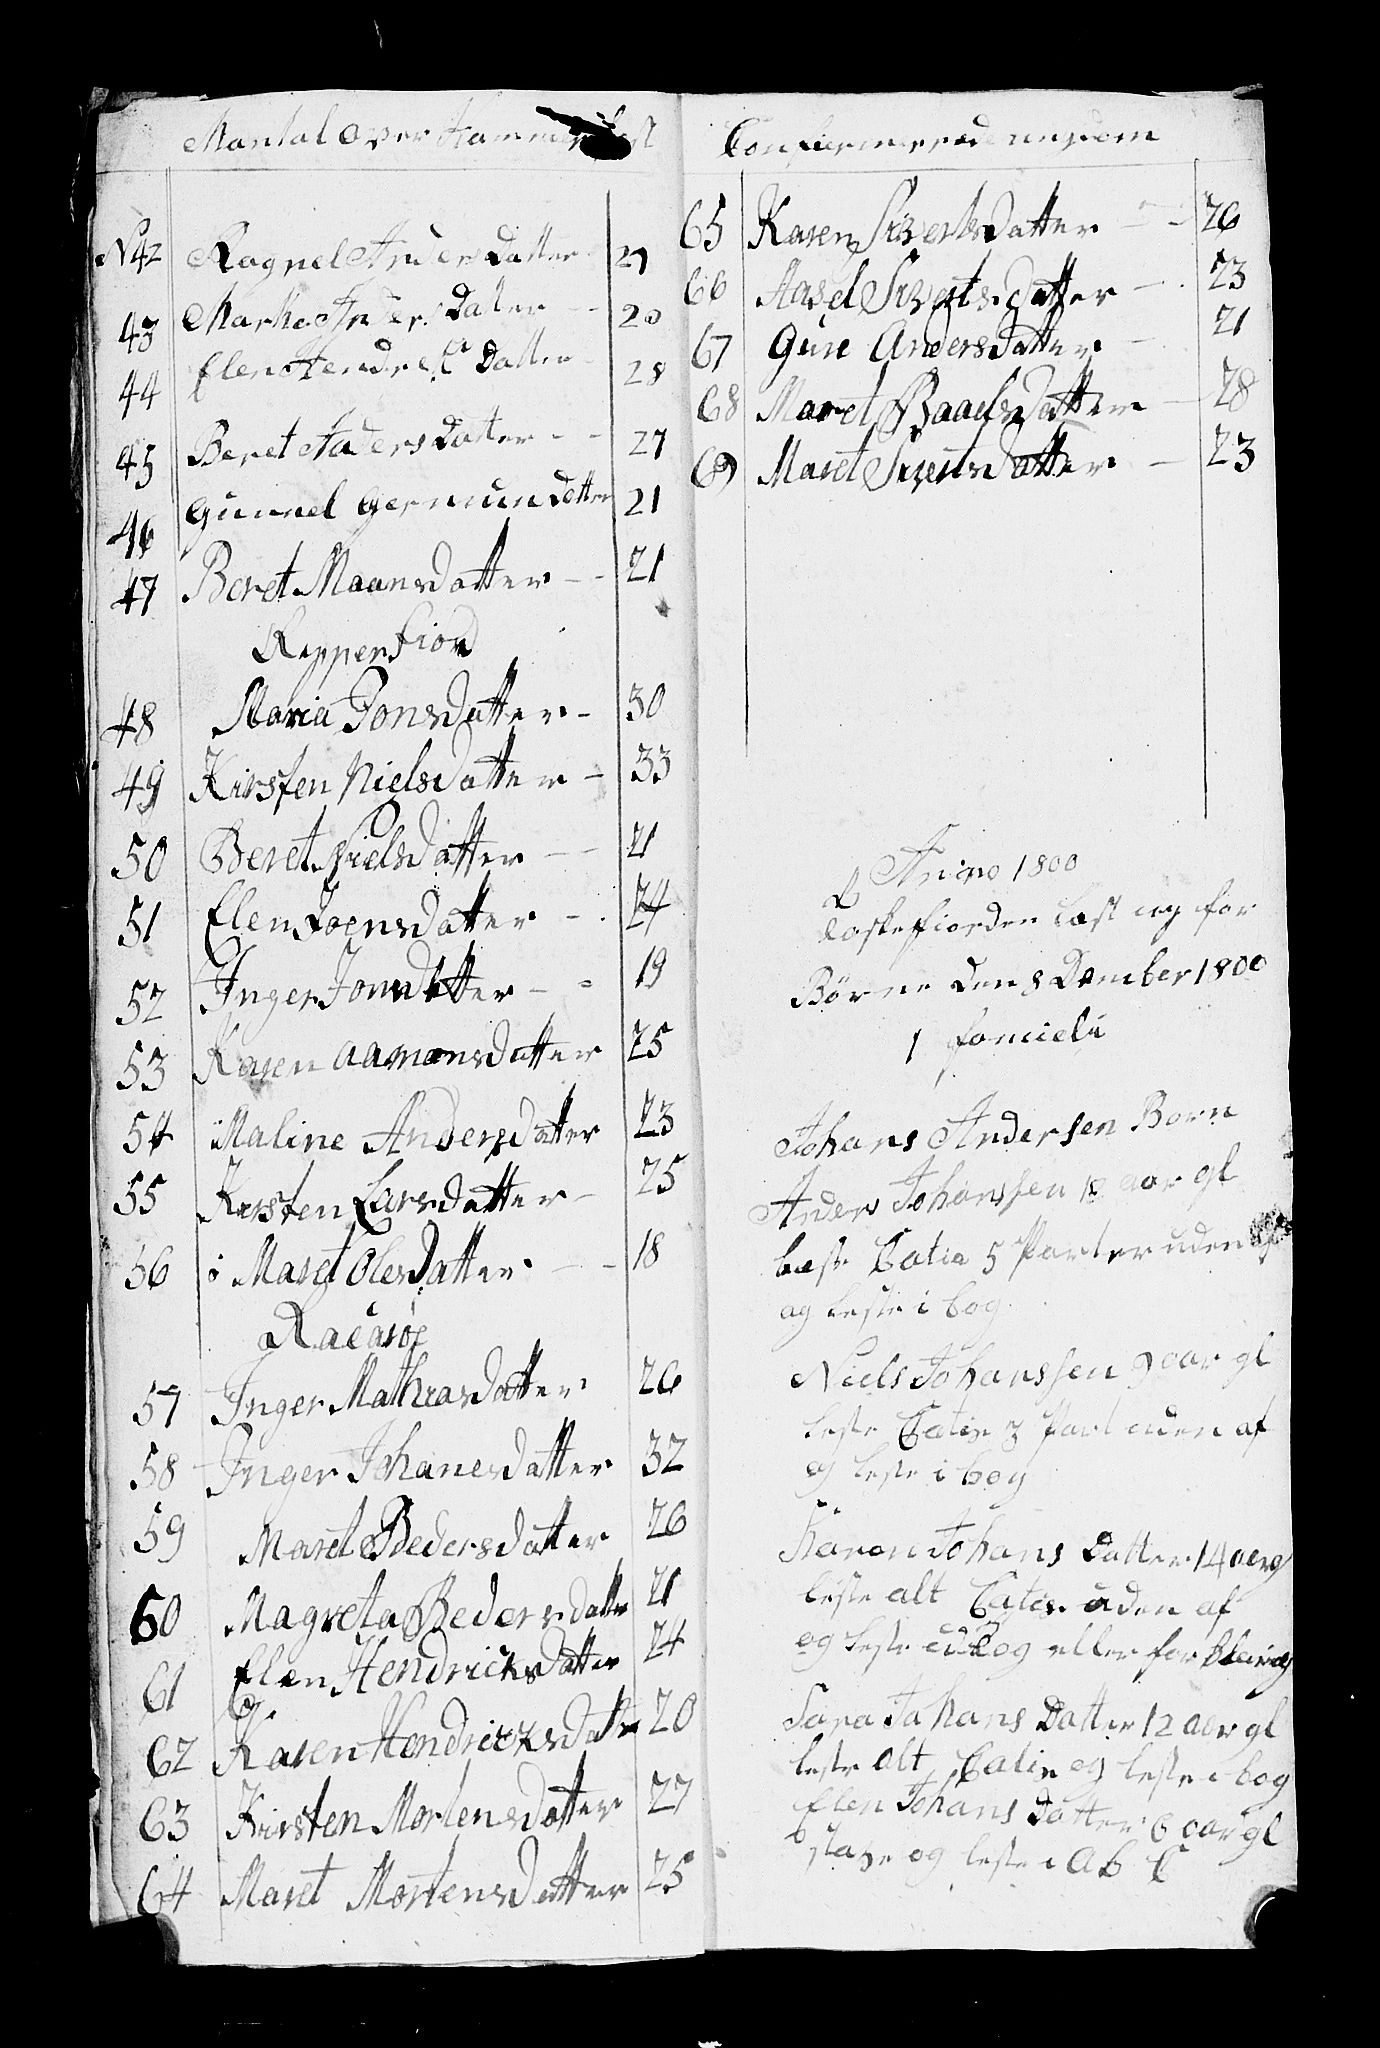 Mantal over Hammerfest
N 42 Ragnel AndersDatter 27
43 Marhe AndersDatter 20
44 Elen Hendrik Datter 28
45 Beret AndersDatter 27
46 Gunnel GermunDatter 21
47 Beret MaansDatter 21
Repperfiord
48 Maria JonsDatter 30
49 Kirsten NielsDatter 33
50 Beret NielsDatter 21
51 Elen JoensDatter 24
52 Inger JonsDatter 19
53 Karen AamonsDatter 25
54 Maline AndersDatter 23
55 Kirsten LarsDatter 25
56 Maret OlesDatter 18
57 Inger MathiasDatter 26
58 Inger JohanesDatter 32
59 Maret PedersDatter 26
60 Magreta PedersDatter 21
61 Elen HendricksDatter 24
62 Karen HendricksDatter 20
63 Kirsten MortensDatter 27
64 Maret MortensDatter 25
Confirmerede ungdom
65 Karen SivertsDatter 26
66 Aasel SivertsDatter 23
67 Guri AndersDatter 21
68 Maret PaaelsDatter 28
69 Maret SivertsDatter 23
Anno 1800
Læste ieg for
Børne Den 8 Dæmber 1800
1 familie
Johans Andersen Born
Anders Johanssen aar gl
læste Catie 5 Parter uden
og leste i bog
Niels Johanssen 9 aar gl
leste Catie 3 Part uden af
og leste i bog
Karen Johans Datter 14 aar g
leste alt Catie uden af
og leste i bog eller for
Sara Johans Datter 12 aar gl
leste alt Catie og leste i bog
Elen Johans Datter 6 aar gl
stave og leste i AbC